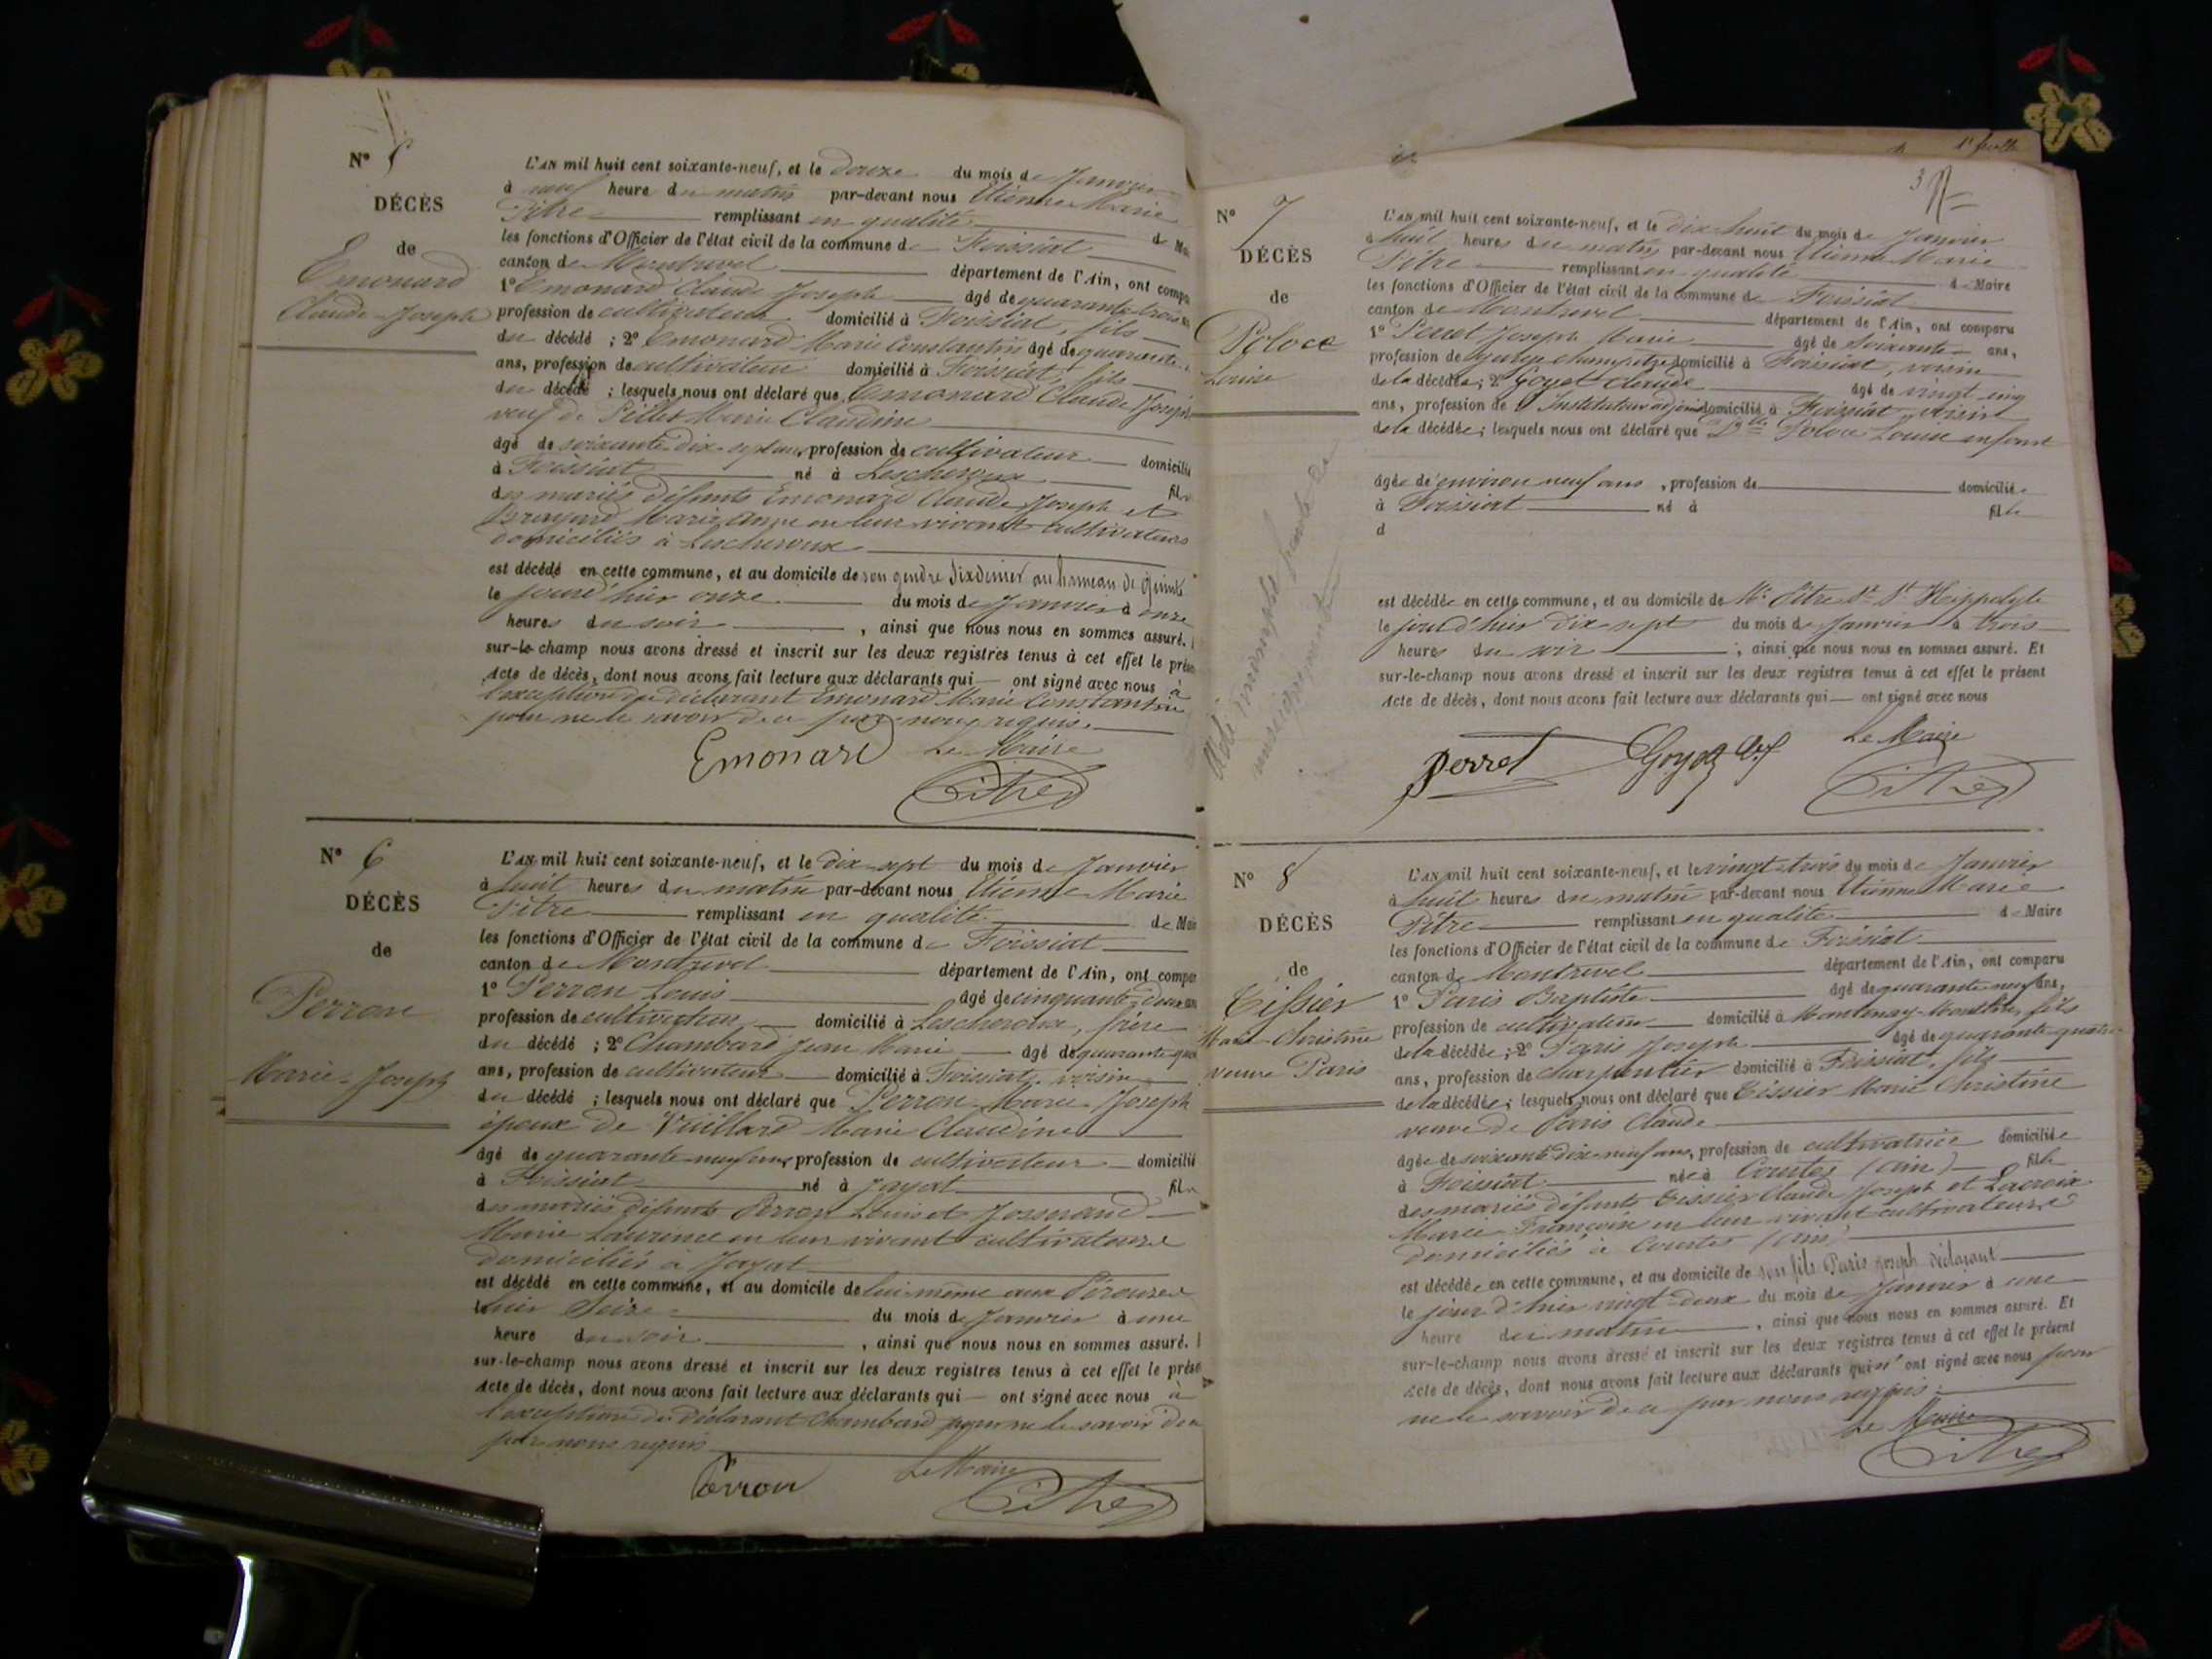 N° 5
DÉCÈS
de
Emonard
Claude-Joseph
L'AN mil huit cent soixante-neuf, et le douze du mois de Janvier
à neuf heure du matin par-devant nous Etienne Marie
Pitre remplissant en qualité de Mai
les fonctions d'Officier de l'état civil de la commune de Foissiat
canton de Montrevel département de l'Ain, ont compa
1° Emonard Claude Joseph âgé de quarante trois
profession de cultivateur domicilié à Foissiat, fils
du décédé ; 2° Emonard Marie Constantin âgé de quarante
ans, profession de cultivateur domicilié à Foissiat, fils
du décédé ; lesquels nous ont déclaré que Emonard Claude Joseph
veuf de Pillet Marie Claudine
âgé de soixante dix sept ans, profession de cultivateur domicilié
à Foissiat né à Lescheroux fils
des mariés défunts Emonard Claude Joseph et
Brayard Marie Anne en leur vivant cultivateurs
domiciliés à Lescheroux
est décédé en cette commune, et au domicile de son gendre Dixdenier au hameau de
le jourd'hier onze du mois de Janvier à onze
heures du soir , ainsi que nous nous en sommes assuré.
sur-le-champ nous avons dressé et inscrit sur les deux registres tenus à cet effet le prése
Acte de décès, dont nous avons fait lecture aux déclarants qui ont signé avec nous à
l'exception du déclarant Emonard Marie Constantin
pour ne le savoir de ce par nous requis.
Emonard Le Maire
Pitre
N° 6
DÉCÈS
de
Perron
Marie-Joseph
L'AN mil huit cent soixante-neuf, et le dix-sept du mois de Janvier
à huit heures du matin par-devant nous Etienne Marie
Pitre remplissant en qualité de Mair
les fonctions d'Officier de l'état civil de la commune de Foissiat
canton de Montrevel département de l'Ain, ont compar
1° Perron Louis âgé de cinquante deux ans
profession de cultivateur domicilié à Lescheroux, frère
du décédé ; 2° Chambard Jean Marie âgé de quarante
ans, profession de cultivateur domicilié à Foissiat, voisin
du décédé ; lesquels nous ont déclaré que Perron Marie Joseph
époux de Vuillard Marie Claudine
âgé de quarante-neuf ans, profession de cultivateur domicilié
à Foissiat né à Jayat fils
des mariés défunts Perron Louis et Josserand
Marie Laurence en leur vivant cultivateurs
domiciliés à Jayat
est décédé en cette commune, et au domicile de lui-même aux Perouses
hier Seize du mois de Janvier à une
heure du soir , ainsi que nous nous en sommes assuré.
sur-le-champ nous avons dressé et inscrit sur les deux registres tenus à cet effet le prése
Acte de décès, dont nous avons fait lecture aux déclarants qui ont signé avec nous à
l'exception du déclarant Chambard pour ne le savoir de ce
par nous requis
Perron Le Maire
Pitre
1er feuille
3
N° 7
DÉCÈS
de
Poloce
Louise
Acte incomplet faute de
renseignements
L'AN mil huit cent soixante-neuf, et le Dix-huit du mois de Janvier
à huit heures du matin par-devant nous Etienne Marie
Pitre remplissant en qualité de Maire
les fonctions d'Officier de l'état civil de la commune de Foissiat
canton de Montrevel département de l'Ain, ont comparu
1° Perret Joseph Marie âgé de soixante ans,
profession de garde champêtre domicilié à Foissiat, voisin
de la décédée ; 2° Goyot Claude âgé de vingt cinq
ans, profession de Instituteur adjoint domicilié à Foissiat, voisin
de la décédée ; lesquels nous ont déclaré que Poloce Louise enfant
âgée de environ neuf ans , profession de domiciliée
à Foissiat né à fille
d
est décédée en cette commune, et au domicile de Mr Pitre St Hippolyte
le jourd'hier dix sept du mois de Janvier à trois
heures du soir , ainsi que nous nous en sommes assuré. Et
sur-le-champ nous avons dressé et inscrit sur les deux registres tenus à cet effet le présent
Acte de décès, dont nous avons fait lecture aux déclarants qui ont signé avec nous
Le Maire
Perret Goyot Pitre
N° 8
DÉCÈS
de
Tissier
Marie-Christine
veuve Paris
L'AN mil huit cent soixante-neuf, et le vingt-trois du mois de Janvier
à huit heures du matin par-devant nous Etienne Marie
Pitre remplissant en qualité de Maire
les fonctions d'Officier de l'état civil de la commune de Foissiat
canton de Montrevel département de l'Ain, ont comparu
1° Paris Baptiste âgé de quarante neuf ans,
profession de cultivateur domicilié à fils
de la décédée ; 2° Paris Joseph âgé de quarante-quatre
ans, profession de charpentier domicilié à Foissiat, fils
de la décédée ; lesquels nous ont déclaré que Tissier Marie Christine
veuve de Paris Claude
âgée de soixante dix-neuf ans, profession de cultivatrice domiciliée
à Foissiat née à Courtes (Ain) fille
des mariés défunts Tissier Claude Joseph et Lacroix
Marie Françoise en leur vivant cultivateurs
domiciliés à Courtes (Ain)
est décédée en cette commune, et au domicile de son fils Paris Joseph déclarant
le jour d'hier vingt-deux du mois de Janvier à une
heure du matin , ainsi que nous nous en sommes assuré. Et
sur-le-champ nous avons dressé et inscrit sur les deux registres tenus à cet effet le présent
Acte de décès, dont nous avons fait lecture aux déclarants qui n'ont signé avec nous pour
ne le savoir de ce par nous requis.
Le Maire
Pitre